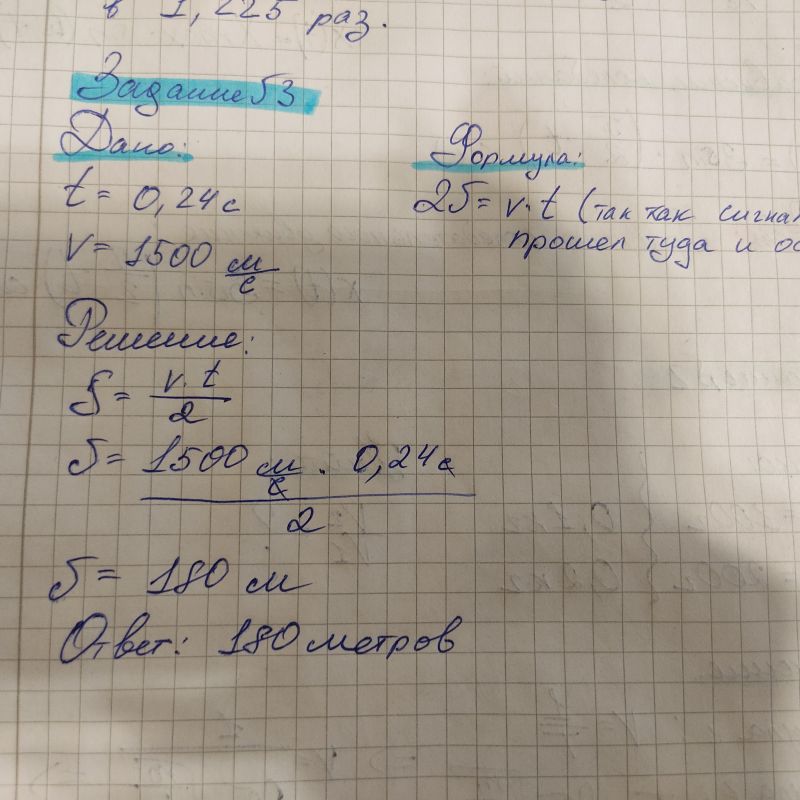 в 1,225 раз.
Задание 53
Дано:
t = 0,24 с
V = 1500 м/с
Формула:
2S = v · t (так как сигнал
прошел туда и об
Решение:
S = v · t / 2
S = 1500 м/с · 0,24 с / 2
S = 180 м
Ответ: 180 метров